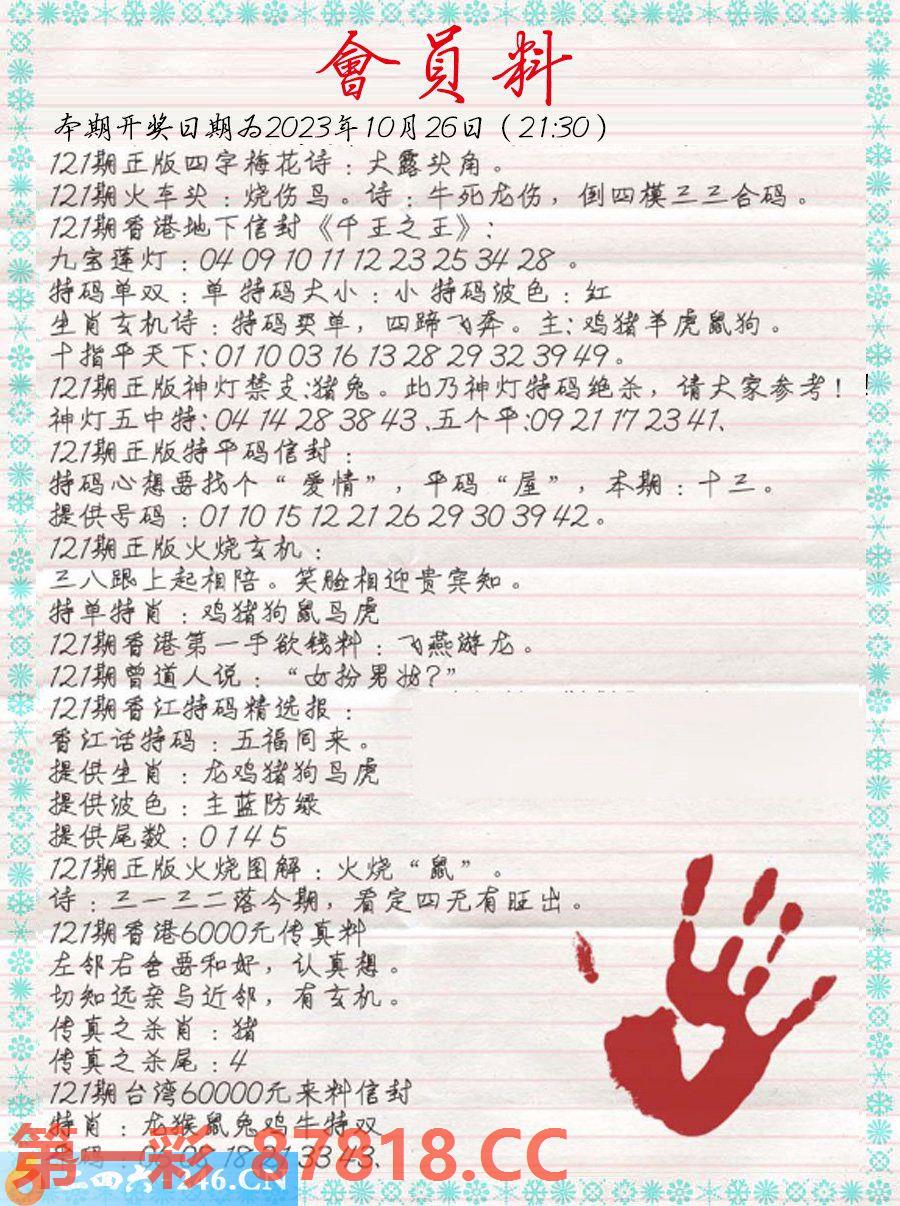 會員料
本期开奖日期为2023年10月26日（21:30）
121期正版四字梅花诗：大露头角。
121期火车头：烧伤鸟。诗：牛死龙伤，倒四模三三合码。
121期香港地下信封《千王之王》:
九宝莲灯：04 09 10 11 12 23 25 34 28 。
特码单双：单 特码大小：小 特码波色：红
生肖玄机诗：特码买单，四蹄飞奔。主:鸡猪羊虎鼠狗。
十指平天下:01 10 03 16 13 28 29 32 39 49。
121期正版神灯禁支:猪兔。此乃神灯特码绝杀，请大家参考！!
神灯五中特:04 14 28 38 43 、五个平:09 21 17 23 41、
121期正版特平码信封：
特码心想要找个“爱情”，平码“屋”，本期：十三。
提供号码：01 10 15 12 21 26 29 30 39 42。
121期正版火烧玄机：
三八跟上起相陪。笑脸相迎贵宾知。
特单特肖：鸡猪狗鼠马虎
121期香港第一手欲钱料：飞燕游龙。
121期曾道人说：“女扮男妆?”
121期香江特码精选报：
香江话特码：五福同来。
提供生肖：龙鸡猪狗马虎
提供波色：主蓝防绿
提供尾数：0 1 4 5
121期正版火烧图解：火烧“鼠”。
诗：三一三二落今期，看定四无有旺出。
121期香港6000元传真料
左邻右舍要和好，认真想。
切知远亲与近邻，有玄机。
传真之杀肖：猪
传真之杀尾：4
121期台湾60000元来料信封
特肖：龙猴鼠兔鸡牛特双
18 21 33 43、
第一彩 87818.CC
二四六 246.CN